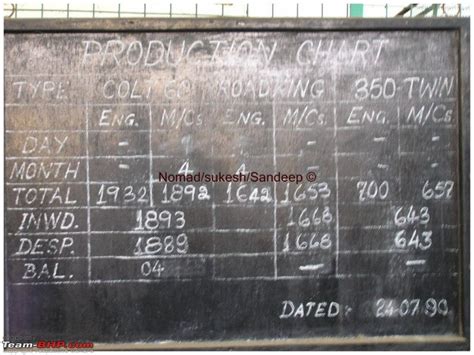 PRODUCTION CHART
TYPE COLT 60 ROADKING 350 TWIN
ENG. M/Cs. ENG. M/Cs. ENG. M/Cs.
DAY - - - - - -
MONTH - - - -
Nomad/sukesh/Sandeep ©
TOTAL 1932 1892 1642 1653 700 657
INWD. 1893 1668 643
DESP. 1889 1668 643
BAL. 04 - -
DATED: 24.07.90.
Team-BHP.com